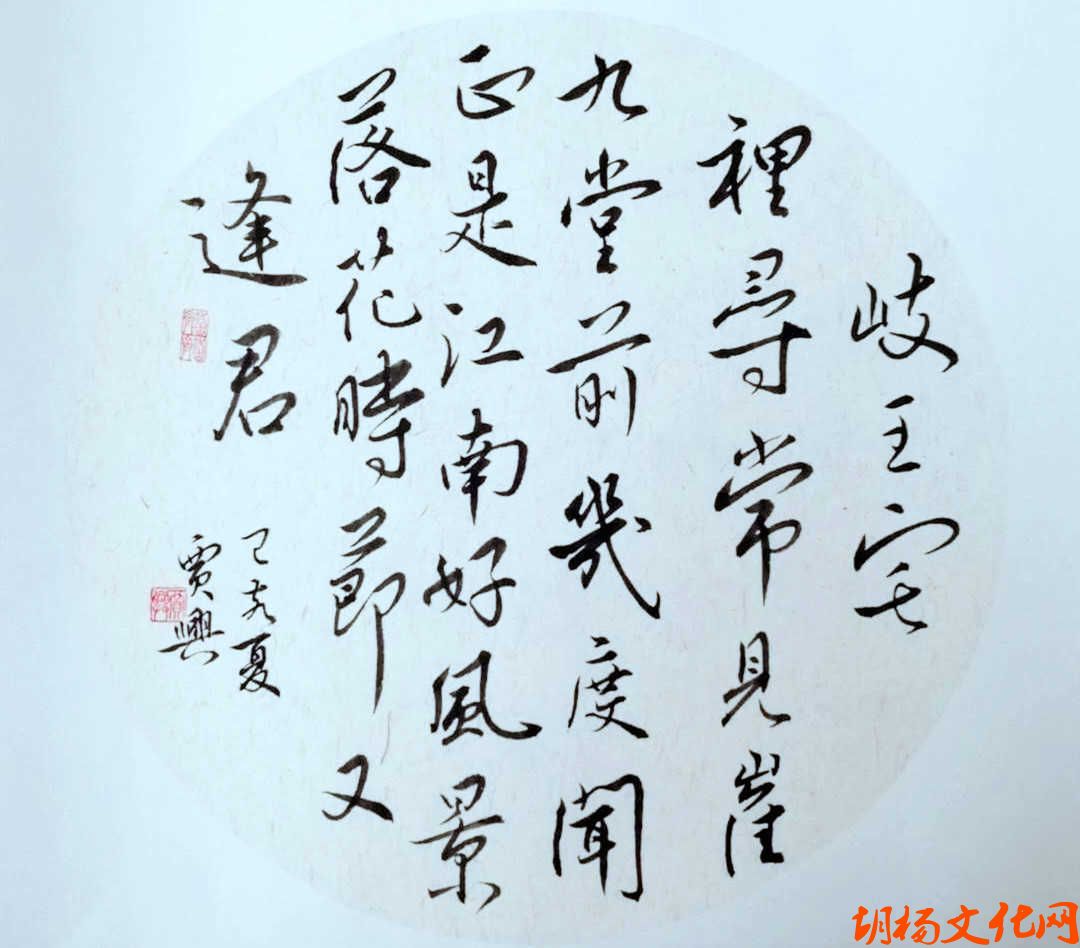 歧王宅
裡尋常見崔
九堂前幾度聞
正是江南好風景
落花時節又
逢君
己亥夏
賈興
胡杨文化网